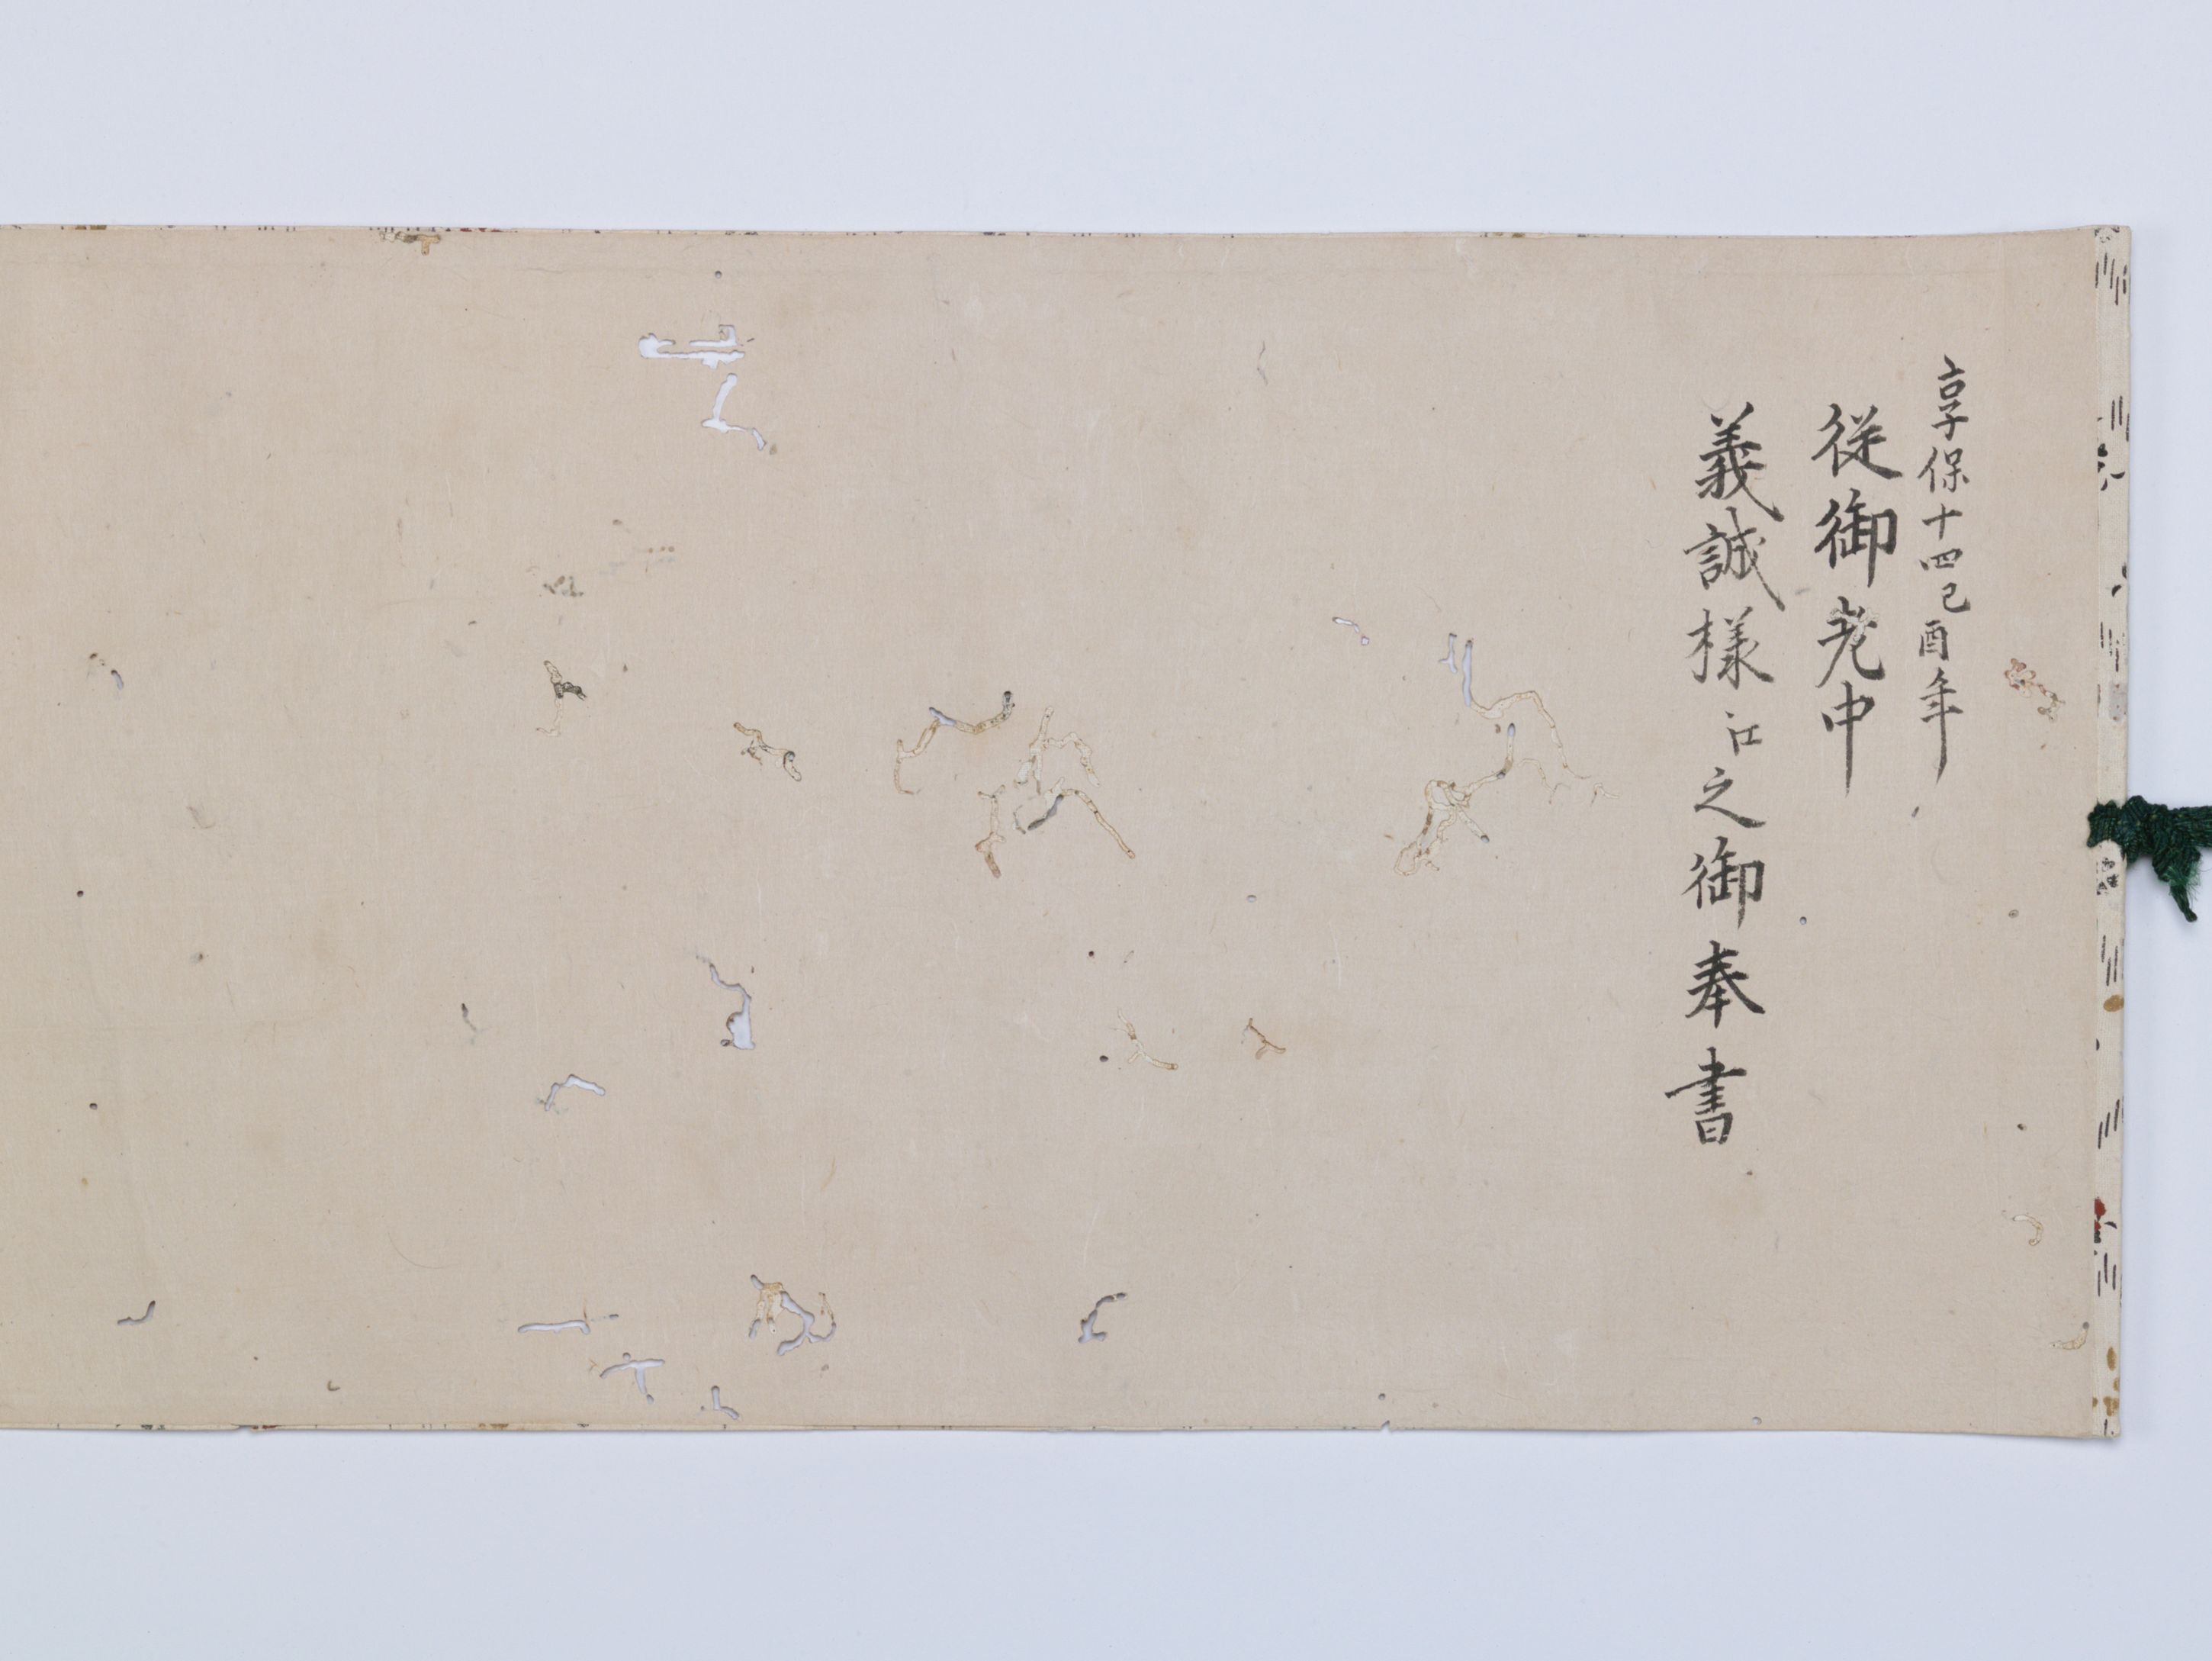 享保十四己酉年
従御老中
義誠様江之御奉書